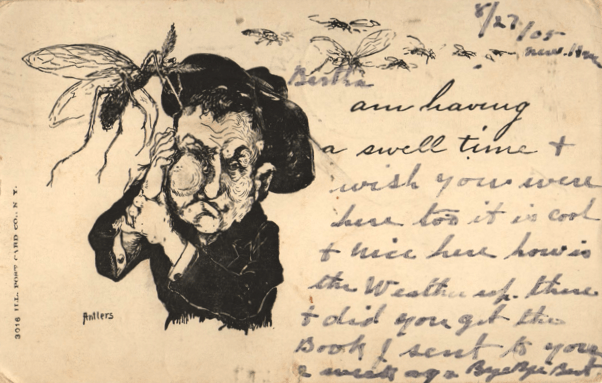 8/27/05
Bertha
am having
a swell time +
wish you were
here too it is cool
+ nice here how is
the Weather up there
+ did you get the
Book I sent to you
a week ago Bye Bye Bert
Antlers
3016 ILL. POST CARD CO., N. Y.